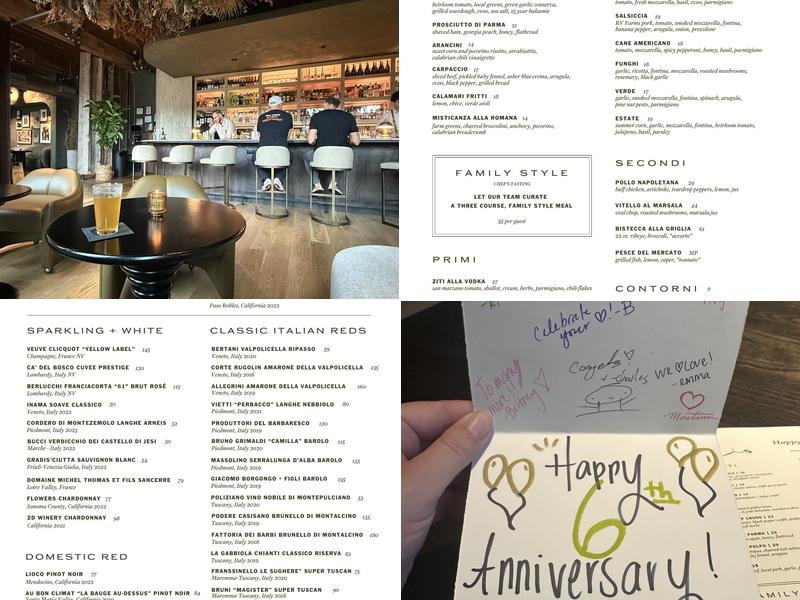 heirloom tomato, local greens, green garlic conserva,
grilled sourdough, evoo, sea salt, 15 year balsamic
PROSCIUTTO DI PARMA 21
shaved ham, georgia peach, honey, flatbread
ARANCINI 14
sweet corn and pecorino risotto, arrabiatta,
calabrian chili vinaigrette
CARPACCIO 17
sliced beef, pickled baby fennel, asher blue crema, arugula,
evoo, black pepper, grilled bread
CALAMARI FRITTI 18
lemon, chive, verde aioli
MISTICANZA ALLA ROMANA 14
farm greens, charred broccolini, anchovy, pecorino,
calabrian breadcrumb
FAMILY STYLE
CHEF'S TASTING
LET OUR TEAM CURATE
A THREE COURSE, FAMILY STYLE MEAL
55 per guest
PRIMI
ZITI ALLA VODKA 27
san marzano tomato, shallot, cream, herbs, parmigiano, chili flakes
tomato, fresh mozzarella, basil, evoo, parmigiano
SALSICCIA 19
RV Farms pork, tomato, smoked mozzarella, fontina,
banana pepper, arugula, onion, parmigiano
CANE AMERICANO 18
tomato, mozzarella, spicy pepperoni, honey, basil, parmigiano
FUNGHI 18
garlic, ricotta, fontina, mozzarella, roasted mushrooms,
rosemary, black garlic
VERDE 17
garlic, smoked mozzarella, fontina, spinach, arugula,
pine nut pesto, parmigiano
ESTATE 19
summer corn, garlic, mozzarella, fontina, heirloom tomato,
jalapeno, basil, parsley
SECONDI
POLLO NAPOLETANA 29
half chicken, artichoke, teardrop peppers, lemon, jus
VITELLO AL MARSALA 44
veal chop, roasted mushrooms, marsala jus
BISTECCA ALLA GRIGLIA 61
22 oz ribeye, broccoli, "acceto"
PESCE DEL MERCATO MP
grilled fish, lemon, caper, "tonnato"
CONTORNI 9
Paso Robles, California 2022
SPARKLING + WHITE
VEUVE CLICQUOT "YELLOW LABEL" 145
Champagne, France NV
CA' DEL BOSCO CUVEE PRESTIGE 120
Lombardy, Italy NV
BERLUCCHI FRANCIACORTA "61" BRUT ROSÉ 115
Lombardy, Italy NV
INAMA SOAVE CLASSICO 50
Veneto, Italy 2022
CORDERO DI MONTEZEMOLO LANGHE ARNEIS 52
Piedmont, Italy 2023
BUCCI VERDICCHIO DEI CASTELLO DI JESI 50
Marche - Italy 2022
GRADIS'CIUTTA SAUVIGNON BLANC 54
Friuli-Venezia Giulia, Italy 2022
DOMAINE MICHEL THOMAS ET FILS SANCERRE 79
Loire Valley, France
FLOWERS CHARDONNAY 77
Sonoma County, California 2022
ZD WINERY CHARDONNAY 98
California 2021
DOMESTIC RED
LIOCO PINOT NOIR 77
Mendocino, California 2022
AU BON CLIMAT "LA BAUGE AU-DESSUS" PINOT NOIR 84
CLASSIC ITALIAN REDS
BERTANI VALPOLICELLA RIPASSO 59
Veneto, Italy 2020
CORTE RUGOLIN AMARONE DELLA VALPOLICELLA 125
Veneto, Italy 2016
ALLEGRINI AMARONE DELLA VALPOLICELLA 160
Veneto, Italy 2019
VIETTI "PERBACCO" LANGHE NEBBIOLO 80
Piedmont, Italy 2021
PRODUTTORI DEL BARBARESCO 120
Piedmont, Italy 2019
BRUNO GRIMALDI "CAMILLA" BAROLO 115
Piedmont, Italy 2019
MASSOLINO SERRALUNGA D'ALBA BAROLO 133
Piedmont, Italy 2019
GIACOMO BORGONGO + FIGLI BAROLO 135
Piedmont, Italy 2019
POLIZIANO VINO NOBILE DI MONTEPULCIANO 53
Tuscany, Italy 2020
PODERE CASISANO BRUNELLO DI MONTALCINO 135
Tuscany, Italy 2019
FATTORIA DEI BARBI BRUNELLO DI MONTALCINO 180
Tuscany, Italy 2016
LA GABBIOLA CHIANTI CLASSICO RISERVA 82
Tuscany, Italy 2019
FRANSSINELLO LE SUGHERE" SUPER TUSCAN 75
Maremma-Tuscany, Italy 2020
BRUNI "MAGISTER" SUPER TUSCAN 90
Maremma-Tuscany, Italy 2018
Celebrate
your ♡!-B
Congrats ♡
-charles
we ♡ love!
-emma
To many
more!!
Brittany
Happy
6th
Anniversary!